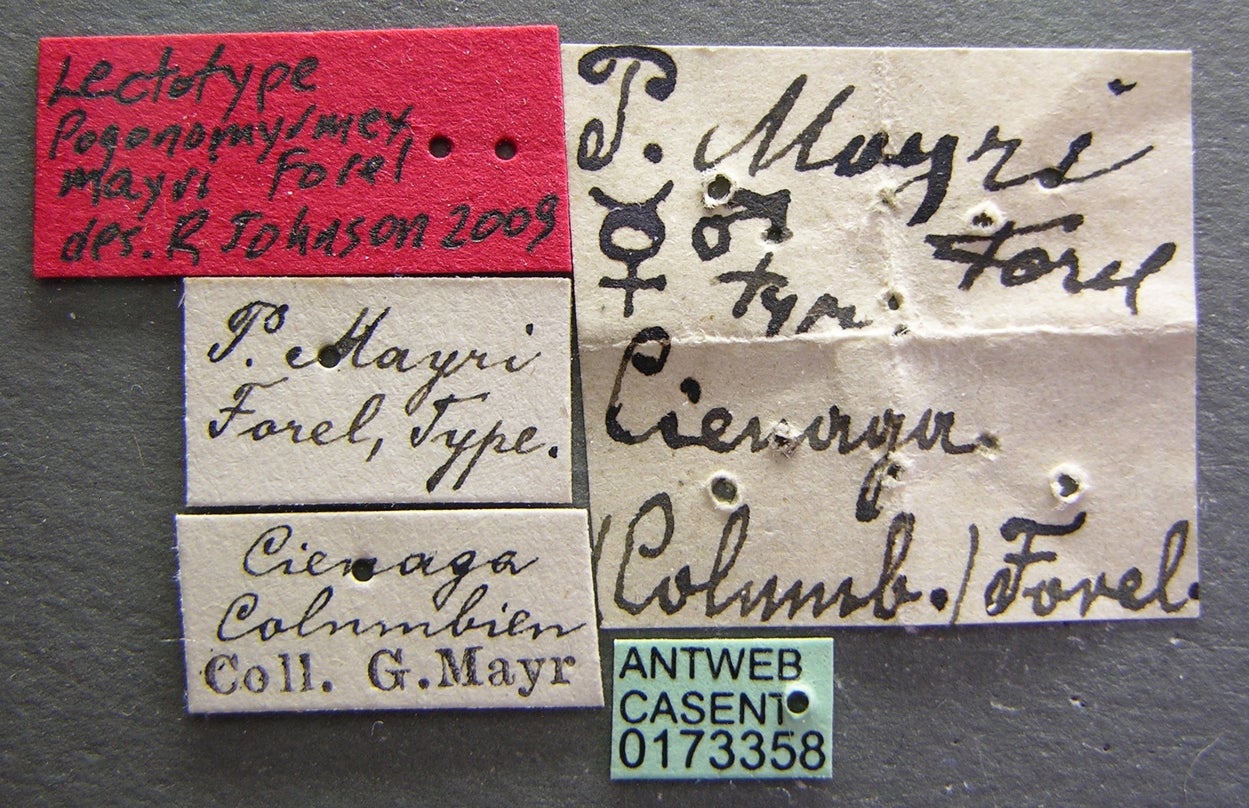 Lectotype
Pogonomyrmex
mayri Forel
des. R Johnson 2009
P. Mayri
Forel, Type.
Cienaga
Columbien
Coll. G. Mayr
P. Mayri
☿ ♂ Forel
typ.
Cienaga.
(Columb.) Forel.
ANTWEB
CASENT
0173358